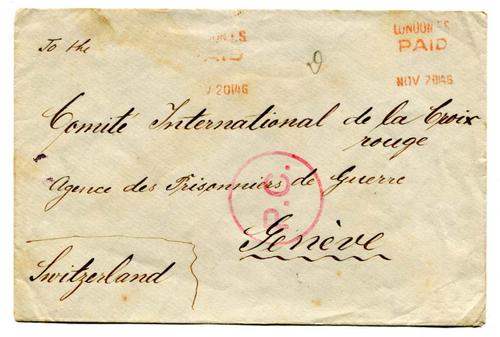 LONDON F.S.
PAID
NOV 20 46
To the
Comité International de la Croix
rouge
Agence des Prisonniers de Guerre
P.C.
Genève
Switzerland